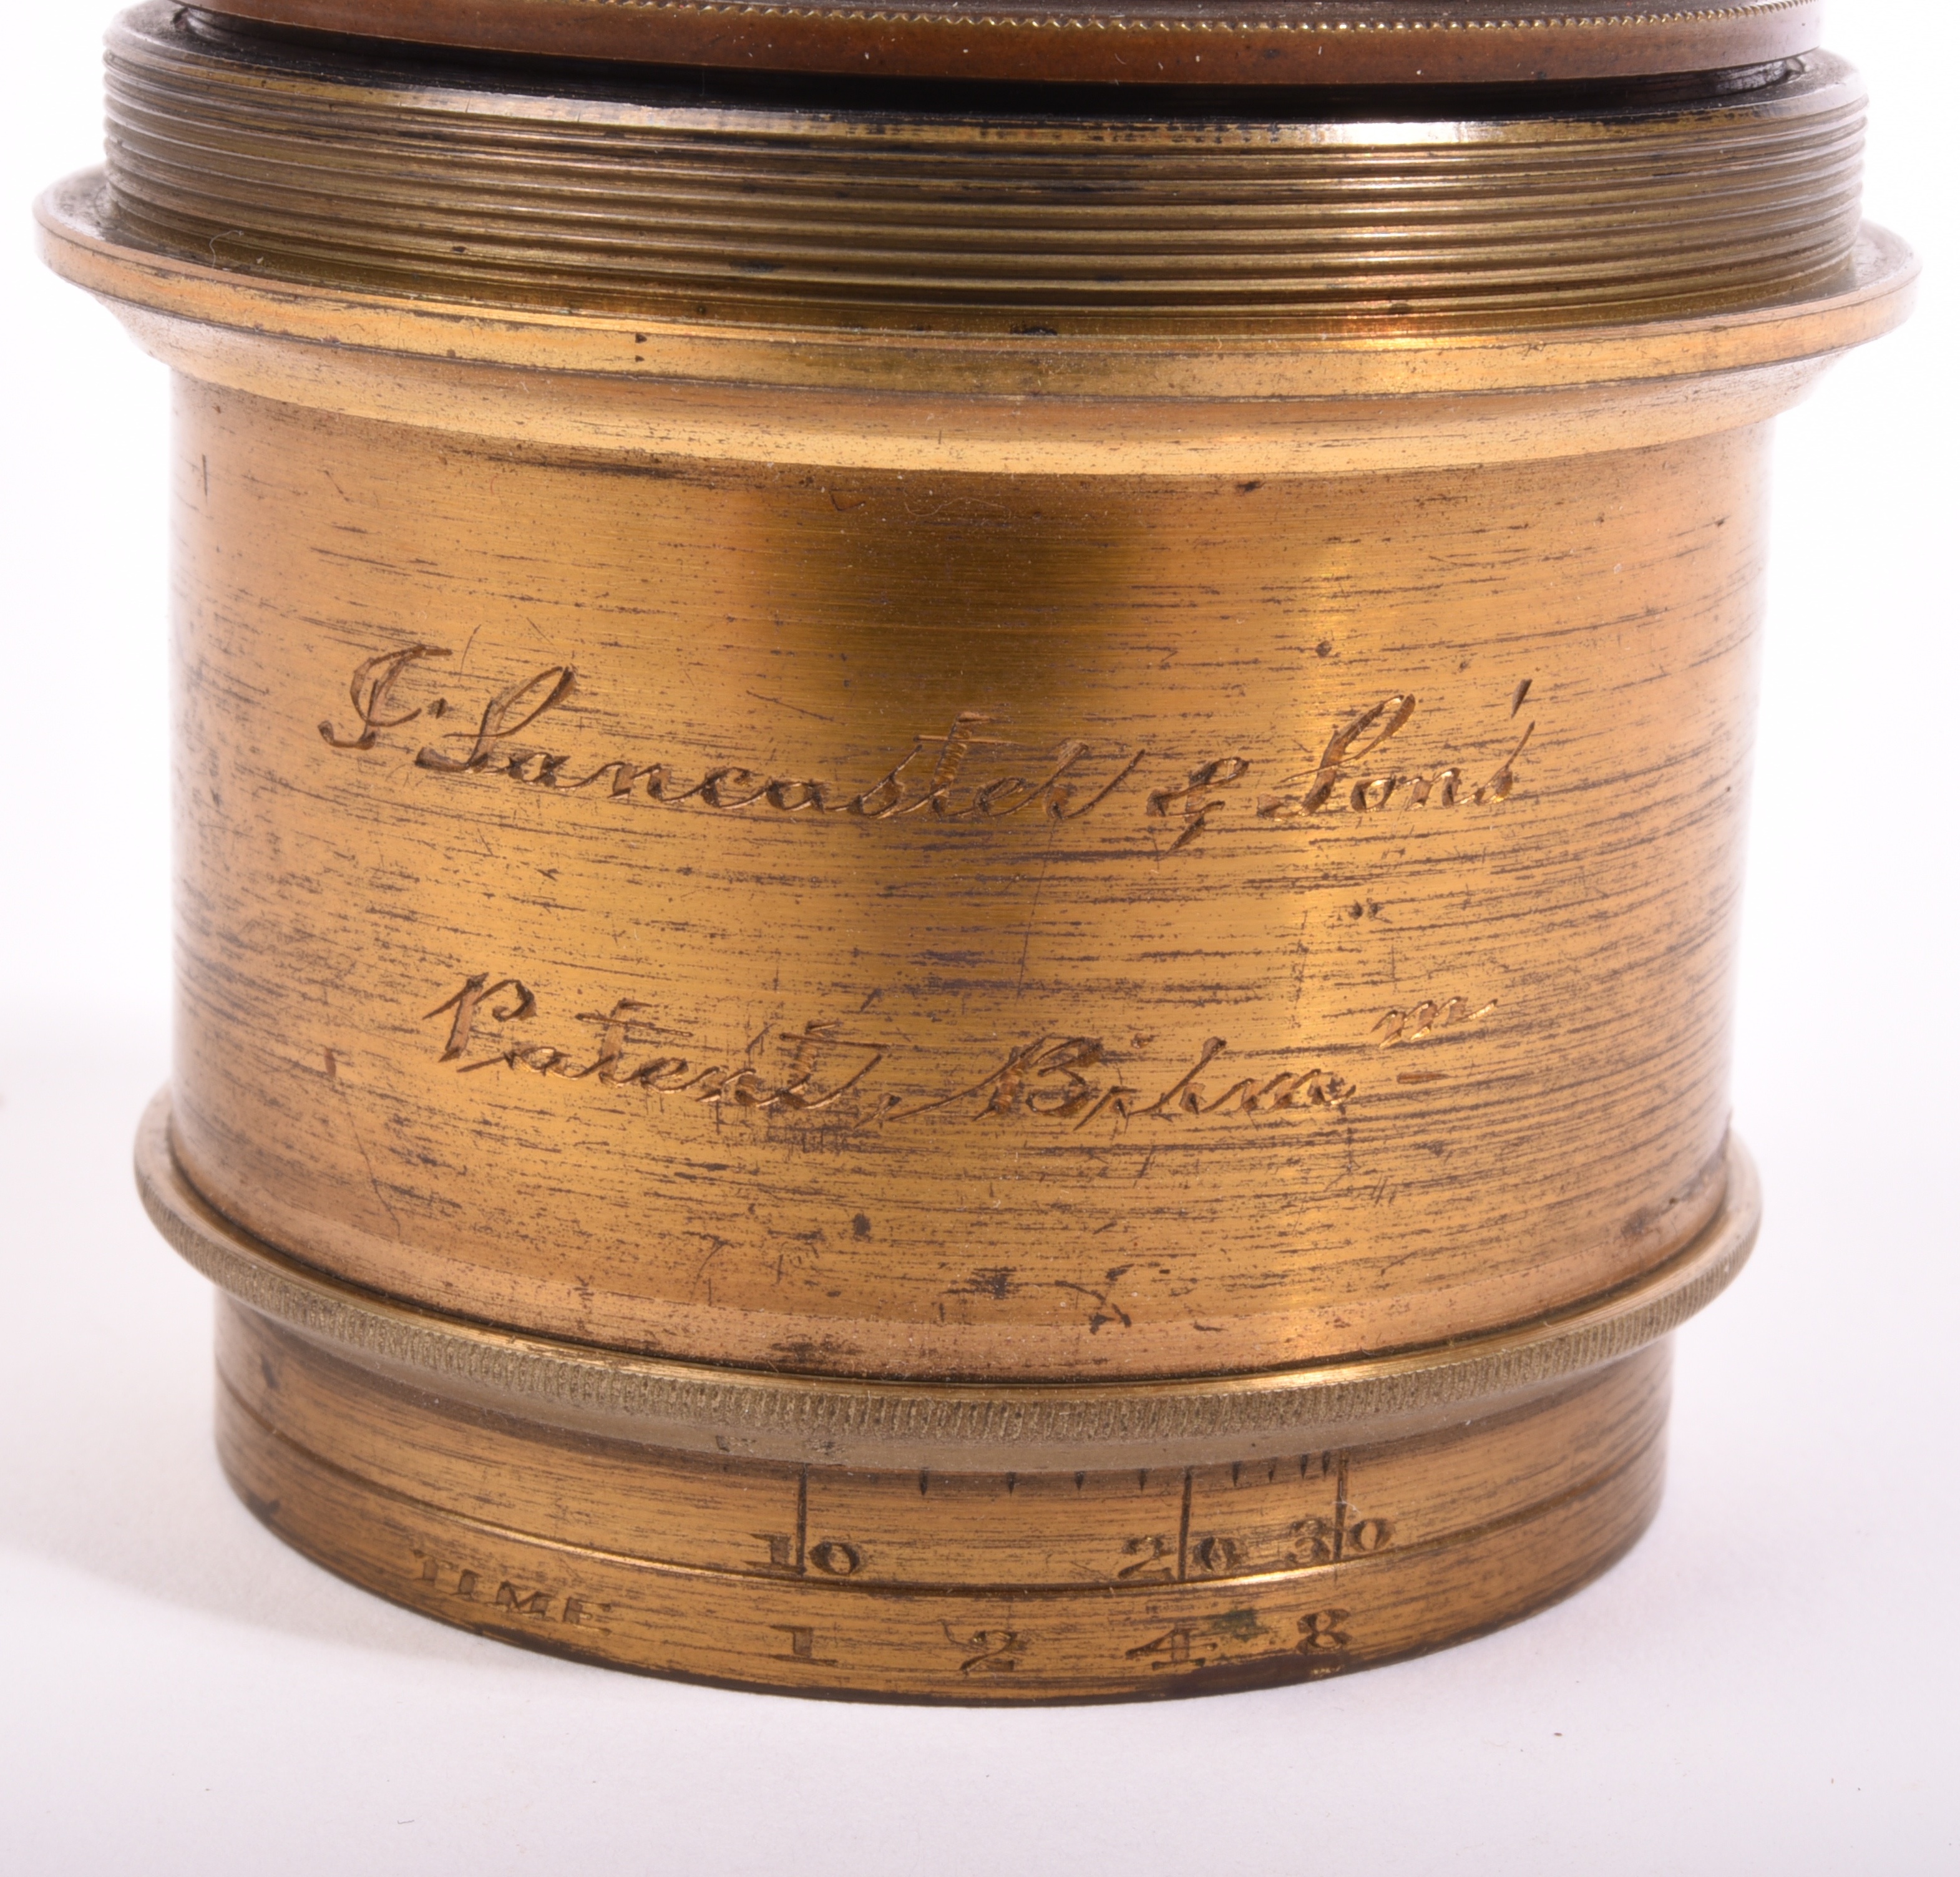 J. Lancaster & Son's
Patent, Birm m
10 20 30
TIME 1 2 4 8